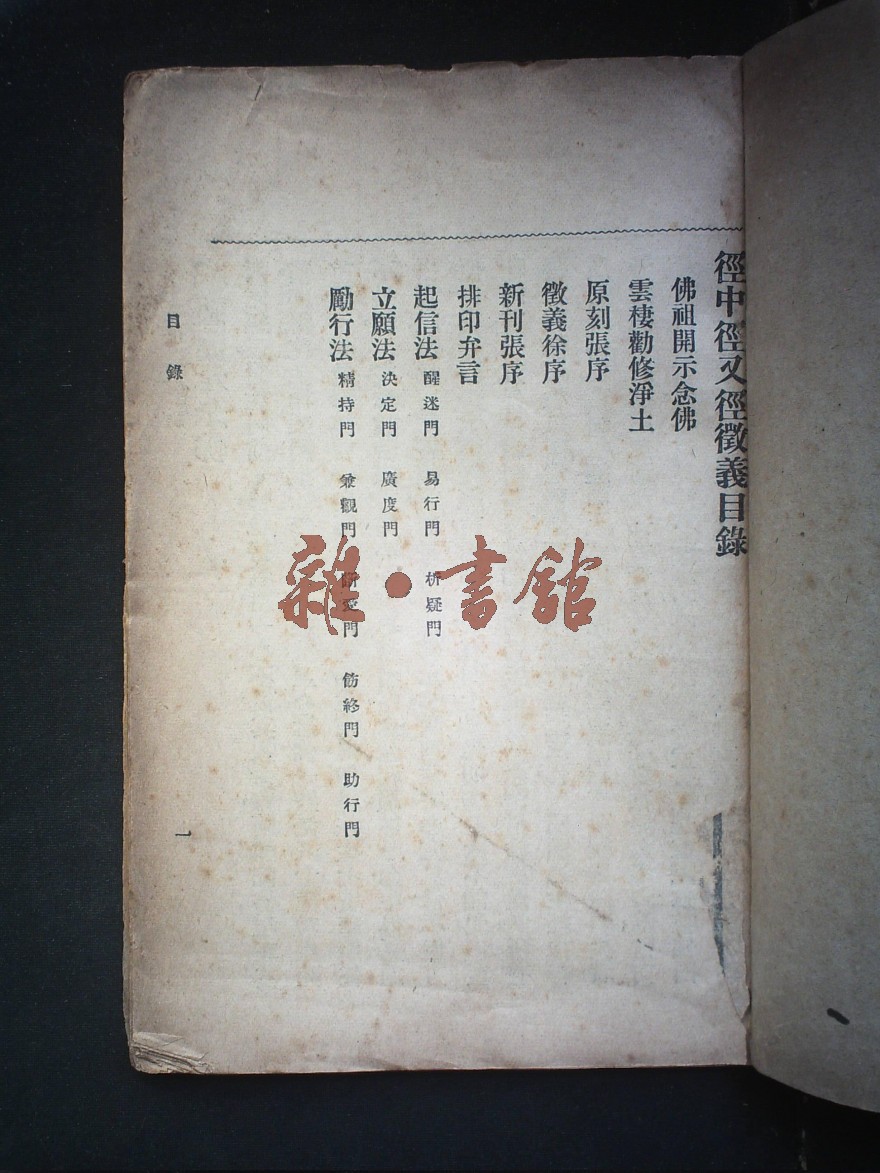 徑中徑又徑徵義目錄
佛祖開示念佛
雲棲勸修淨土
原刻張序
徵義徐序
新刊張序
排印弁言
起信法 醒迷門 易行門 析疑門
立願法 決定門 廣度門
勵行法 精持門 兼觀門 斷愛門 飭終門 助行門
目錄
一
雜·書館